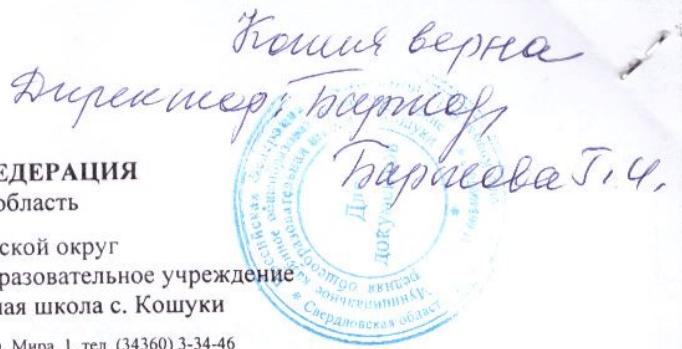 Копия верна
Директор:
Баркова Г.И.
ЕДЕРАЦИЯ
область
ской округ
разовательное учреждение
ная школа с. Кошуки
. Мира, 1, тел. (34360) 3-34-46
Для
документов
Российская Федерация
Свердловская област